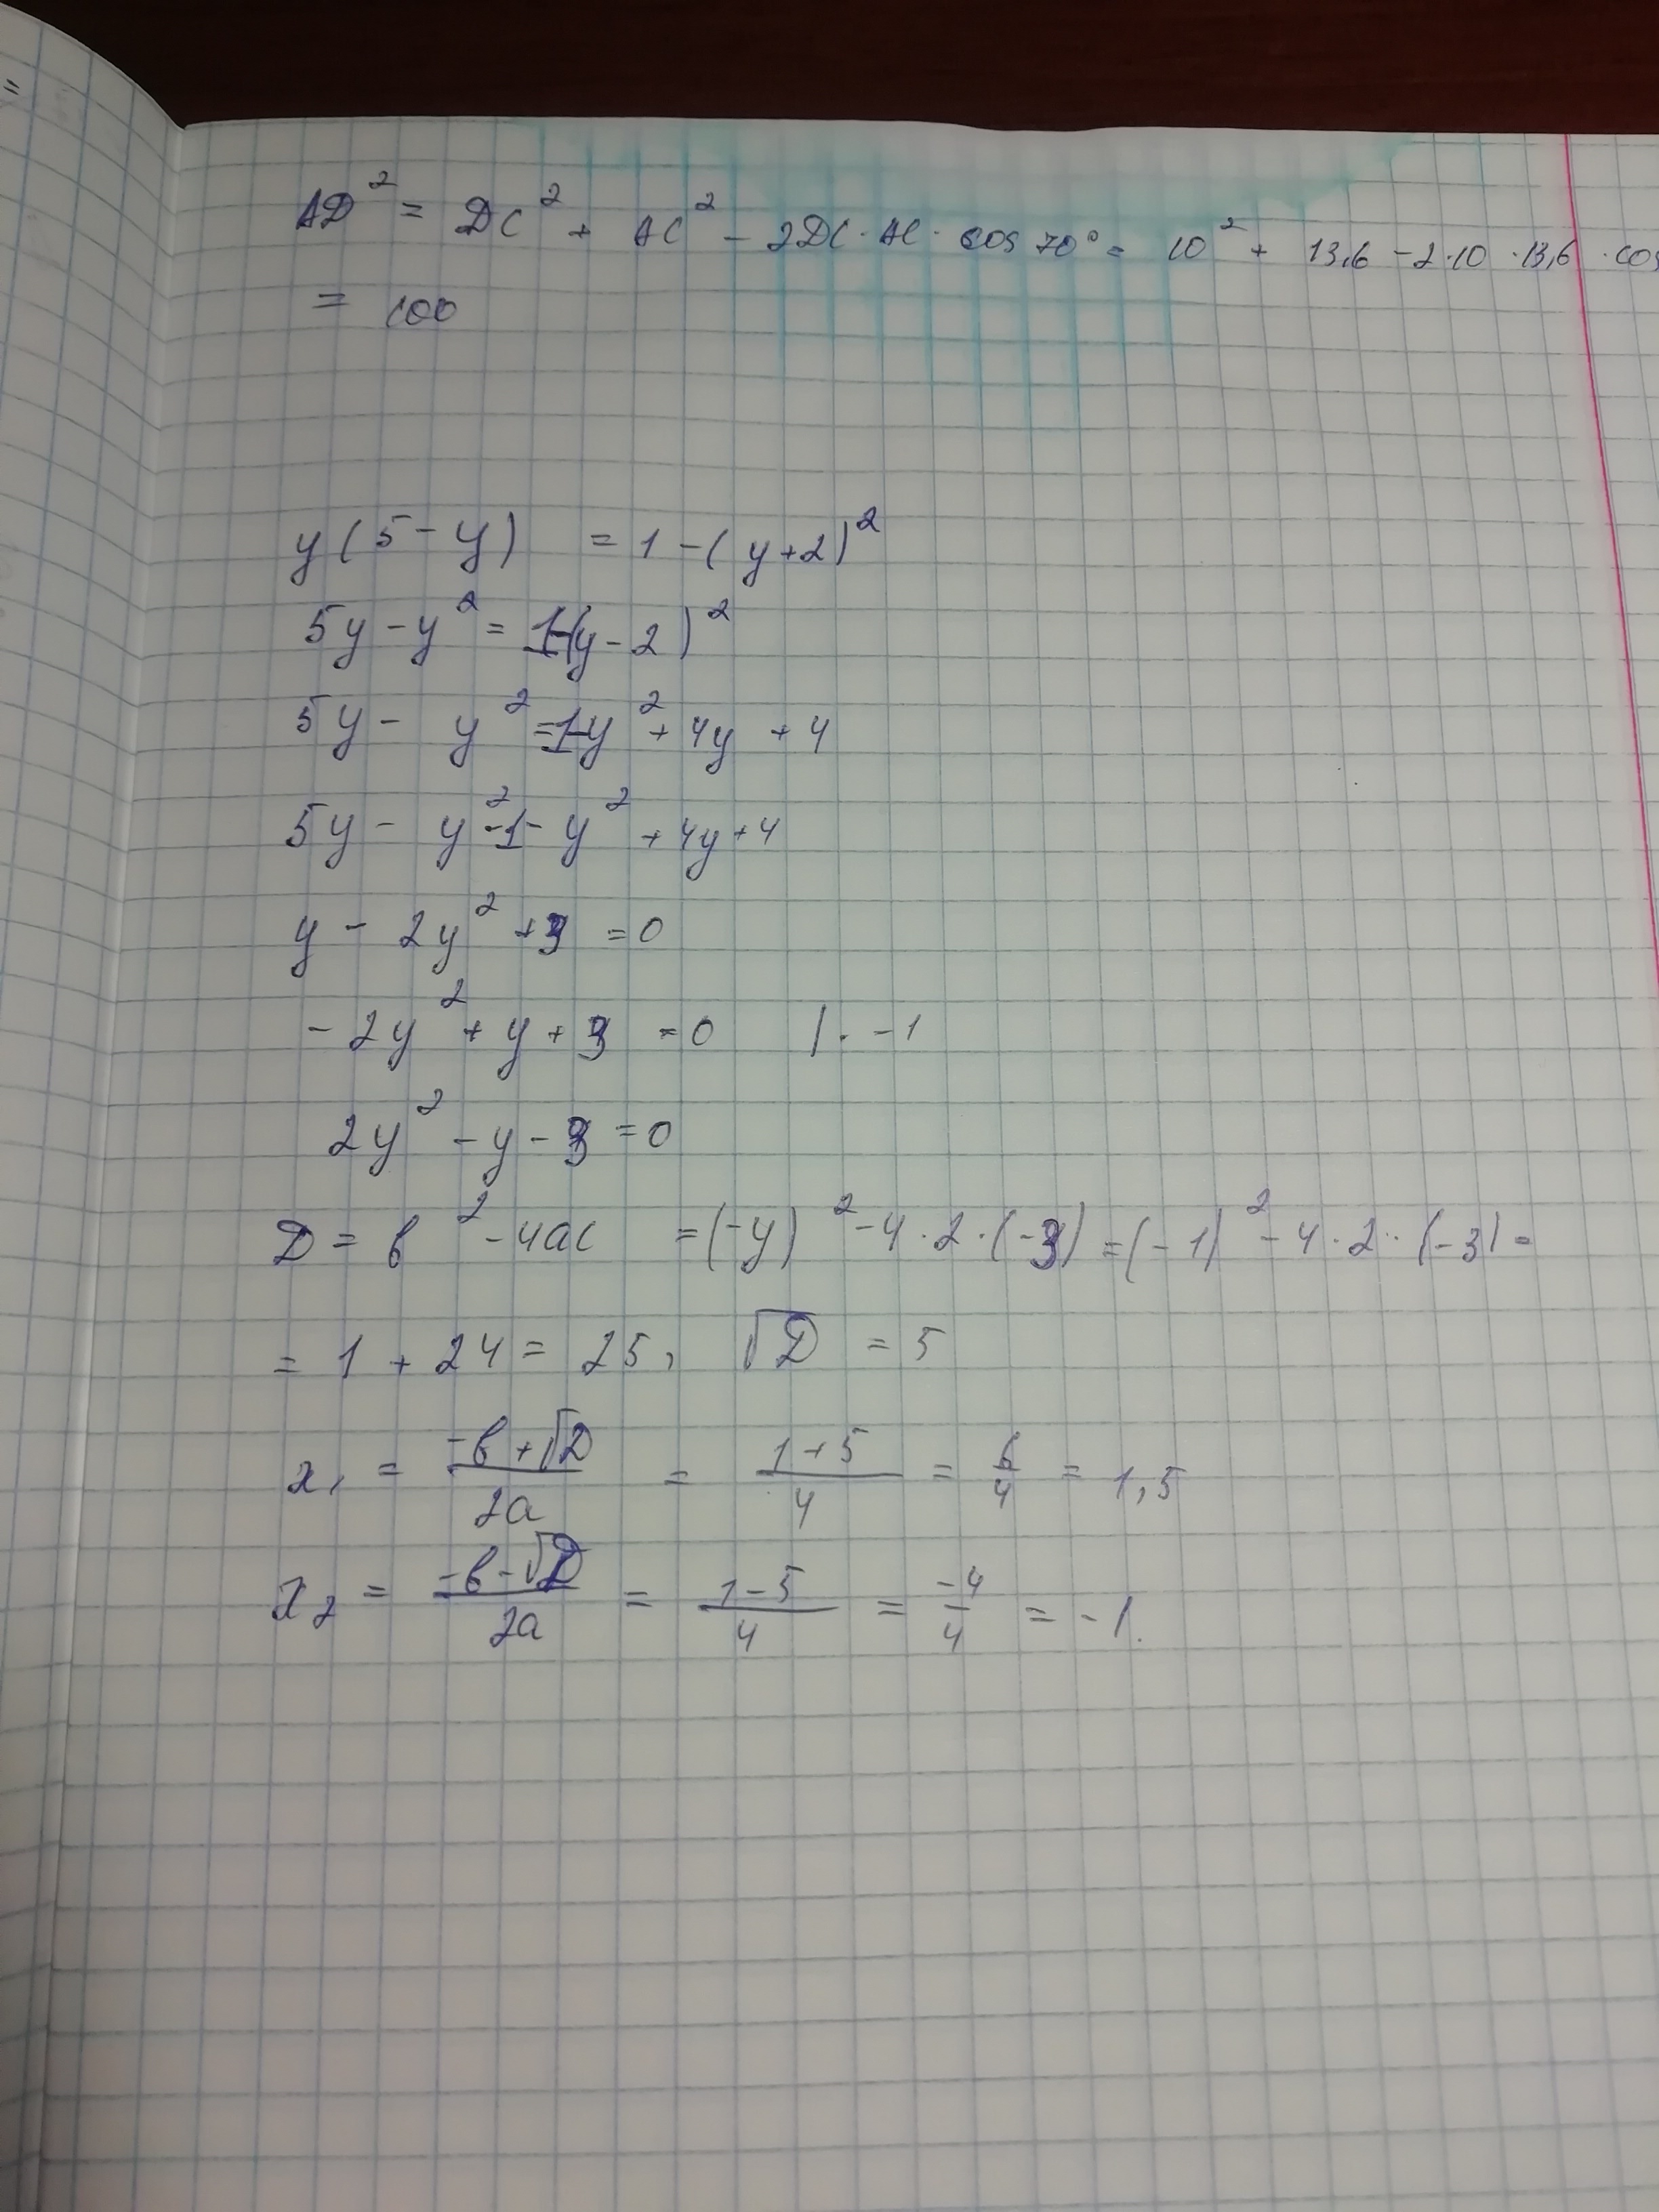 =
AD² = DC² + AC² - 2DC · AC · cos 70° = 10² + 13,6 - 2·10 · 13,6 · cos
= 100
y(5 - y) = 1 - (y+2)²
5y - y² = 1-(y - 2)²
5y - y² = 1-y² + 4y + 4
5y - y² -1 - y² + 4y + 4
y - 2y² + 3 = 0
- 2y² + y + 3 = 0 | · -1
2y² - y - 3 = 0
D = b² - 4ac = (-y)² - 4 · 2 · (-3) = (-1)² - 4 · 2 · (-3) =
= 1 + 24 = 25, √D = 5
x₁ = (-b + √D)/2a = (1 + 5)/4 = 6/4 = 1,5
x₂ = (-b - √D)/2a = (1 - 5)/4 = -4/4 = -1.